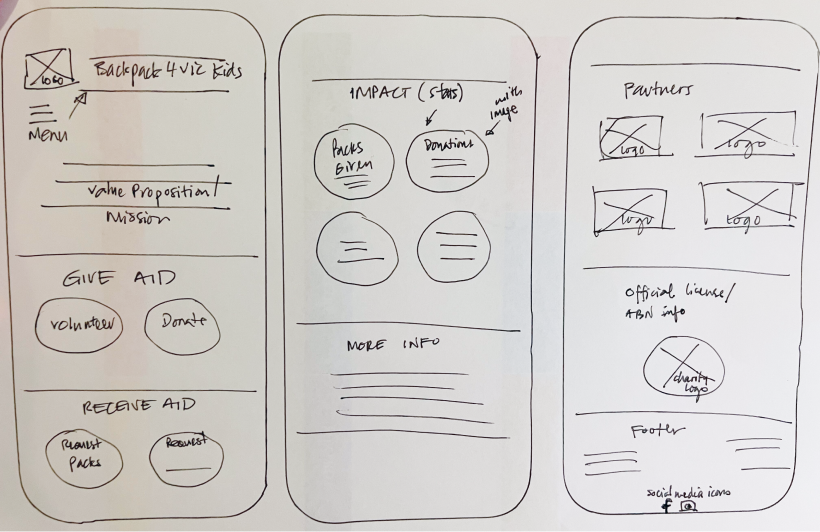 LOGO
Backpack 4 Vic Kids
MENU
Value Proposition/
Mission
GIVE AID
Volunteer
Donate
RECEIVE AID
Request
Packs
Request
IMPACT (stats)
with
image
Packs
Given
Donations
MORE INFO
Partners
Logo
Logo
Logo
Logo
Official license/
ABN info
charity
Logo
Footer
social media icons
f